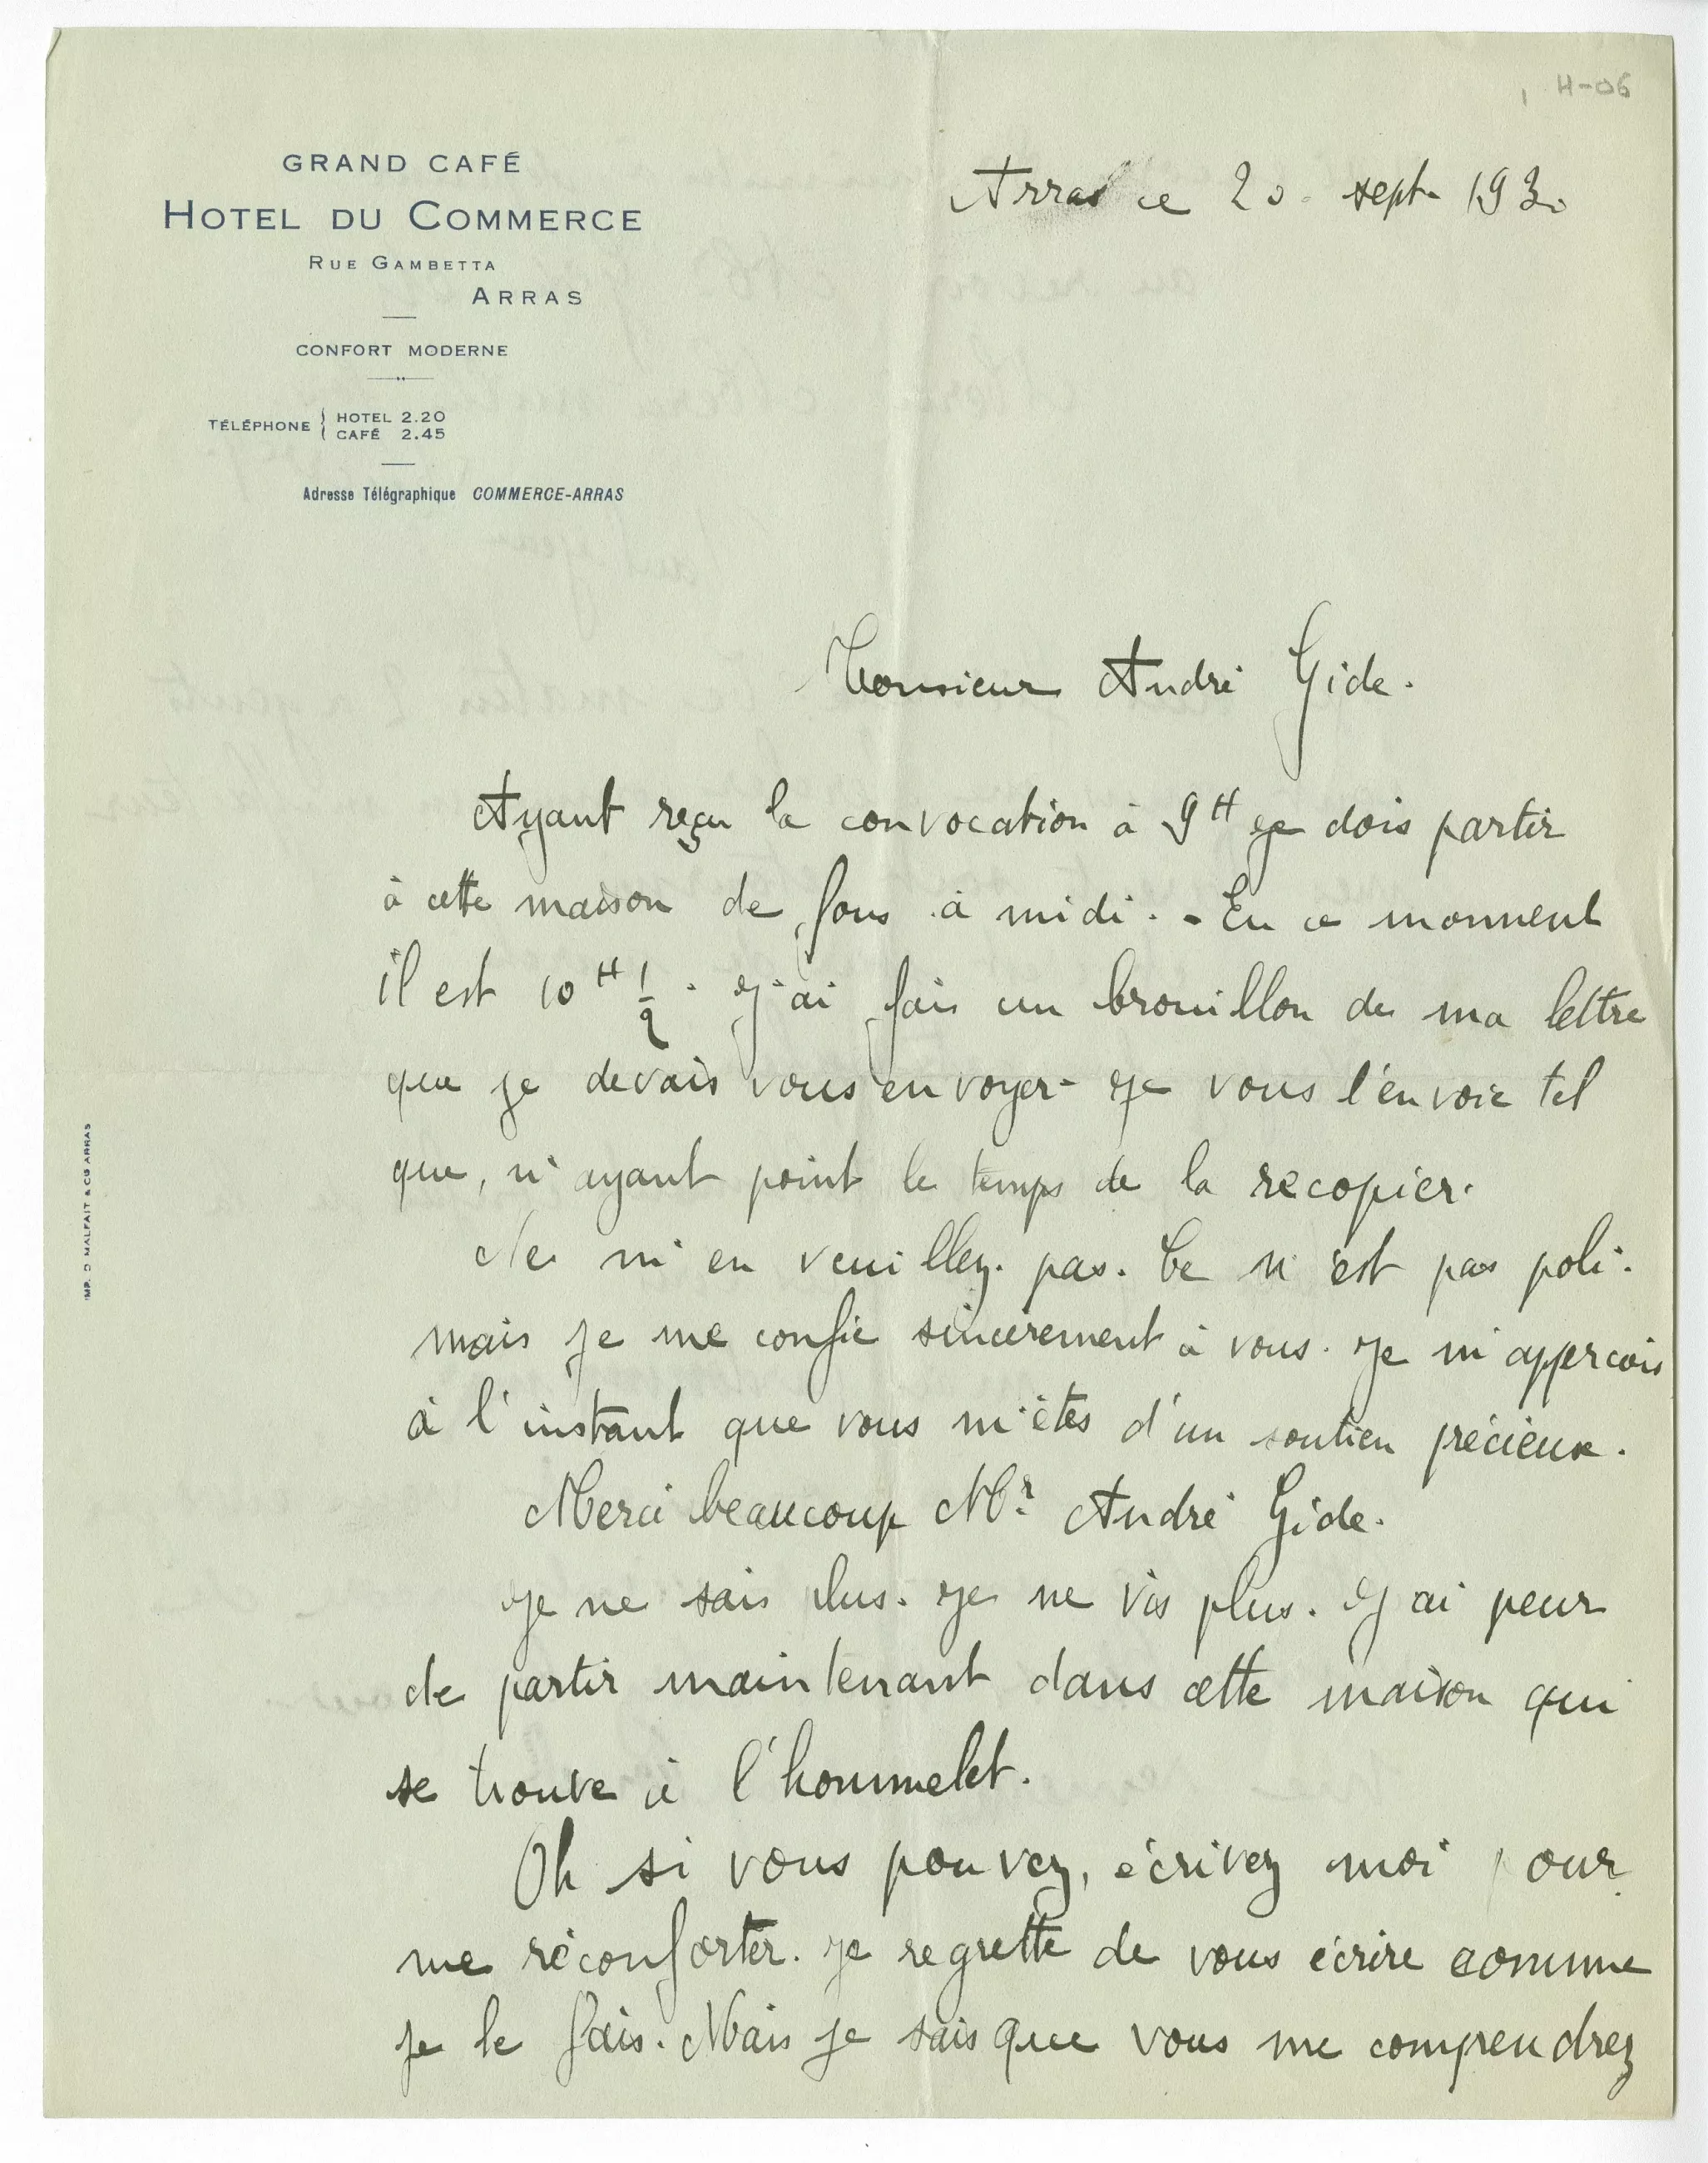 H-06
GRAND CAFÉ
HOTEL DU COMMERCE
RUE GAMBETTA
ARRAS
CONFORT MODERNE
TÉLÉPHONE { HOTEL 2.20
CAFÉ 2.45
Adresse Télégraphique COMMERCE-ARRAS
Arras ce 20. sept. 1930
Monsieur André Gide.
Ayant reçu la convocation à 9H je dois partir
à cette maison de fous à midi. - En ce momment
il est 10H 1/2. J'ai fais un brouillon de ma lettre
que je devais vous envoyer - Je vous l'envoie tel
que, n'ayant point le temps de la recopier.
Ne m'en veuillez pas. Ce n'est pas poli.
mais je me confie sincèrement à vous. Je m'apperçois
à l'instant que vous m'êtes d'un soutien précieux.
Merci beaucoup Mr André Gide.
Je ne sais plus. Je ne vis plus. J'ai peur
de partir maintenant dans cette maison qui
se trouve à l'hommelet.
Oh si vous pouvez, écrivez moi pour
me réconforter. Je regrette de vous écrire comme
je le fais. Mais je sais que vous me comprendrez
IMP. D MALFAIT & CIE ARRAS